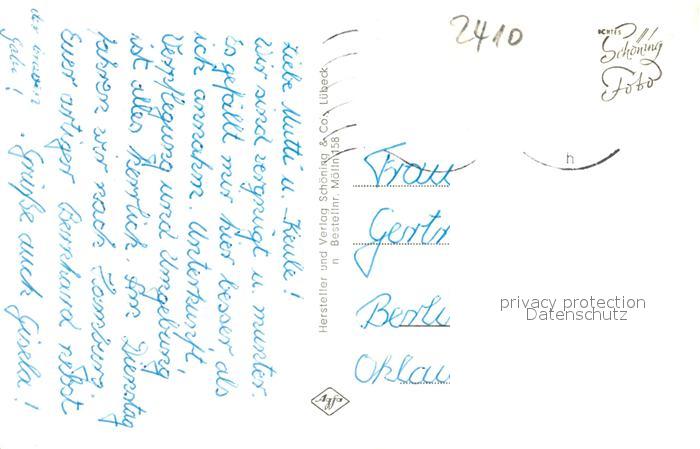 Liebe Mutti u. Keule!
Wir sind vergnügt u. munter.
Es gefällt mir hier besser als
ich annahm. Unterkunft,
Verpflegung und Umgebung
ist alles herrlich. Am Dienstag
fahren wir nach Hamburg.
Euer artiger Bernhard nebst
Grüße auch Gisela!
Hersteller und Verlag Schöning & Co., Lübeck
n Bestellnr. Mölln 158
Agfa
2410
ECHTES
Schöning
Foto
h
Frau
Gertr
Berli
privacy protection
Datenschutz